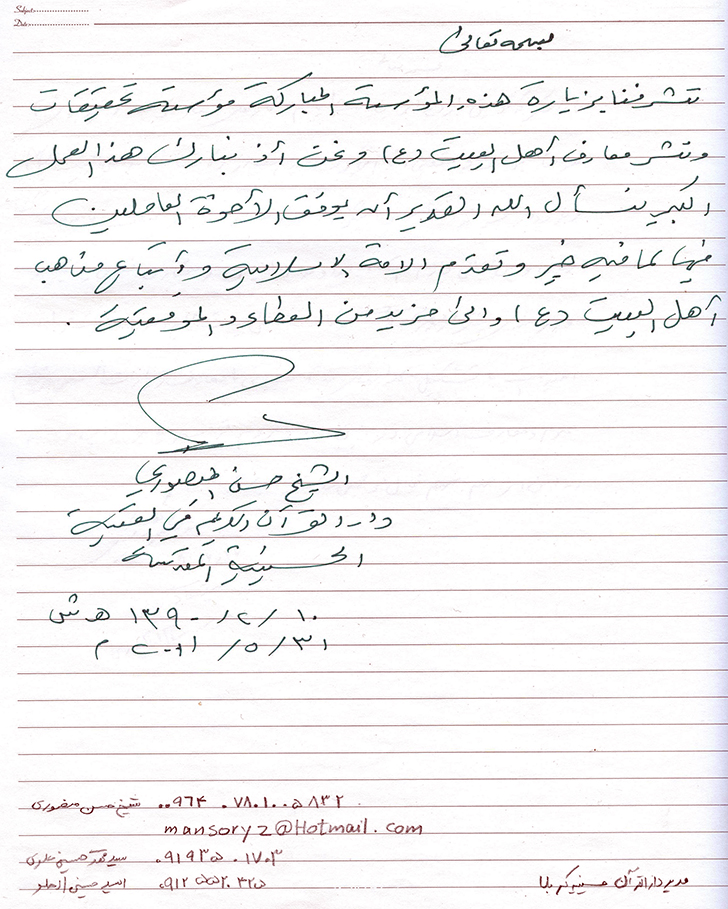 Subject:
Date:
بسمه تعالى
تتشرفنا بزيارة هذه المؤسسة المباركة مؤسسة تحقيقات
ونشر معارف أهل البيت (ع) ونحن أذ نبارك هذا العمل
الكبير نسأل الله القدير أن يوفق الأخوة العاملين
فيها لما فيه خير وتقدم الامة الاسلامية وإتباع مذاهب
أهل البيت (ع) والى مزيد من العطاء والموفقية .
الشيخ حسن المنصوري
دار القرآن الكريم في العتبة
الحسينية المقدسة
١٣٩٠/٢/١٠ هـ ش
٢٠١١/٥/٣١ م
شيخ حسن منصوری ۰۰۹۶۴ ۰۷۸۰۱۰۰۵۸۳۲
mansoryz@Hotmail.com
سید محمد حسینی علوی ۰۹۱۹۳۵۰۱۷۰۳
سید حسینی الحلو ۰۹۱۲۵۵۲۰۳۲۵
مدیر دار القرآن حسینیه کربلا